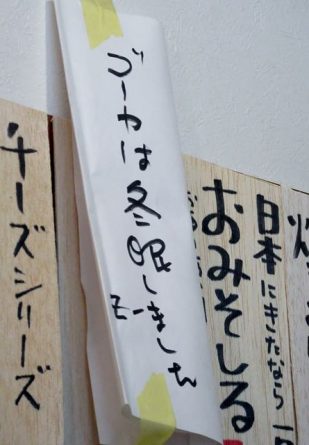 日本にきたなら
おみそしる
ゴーヤは冬眠しました
チーズシリーズ